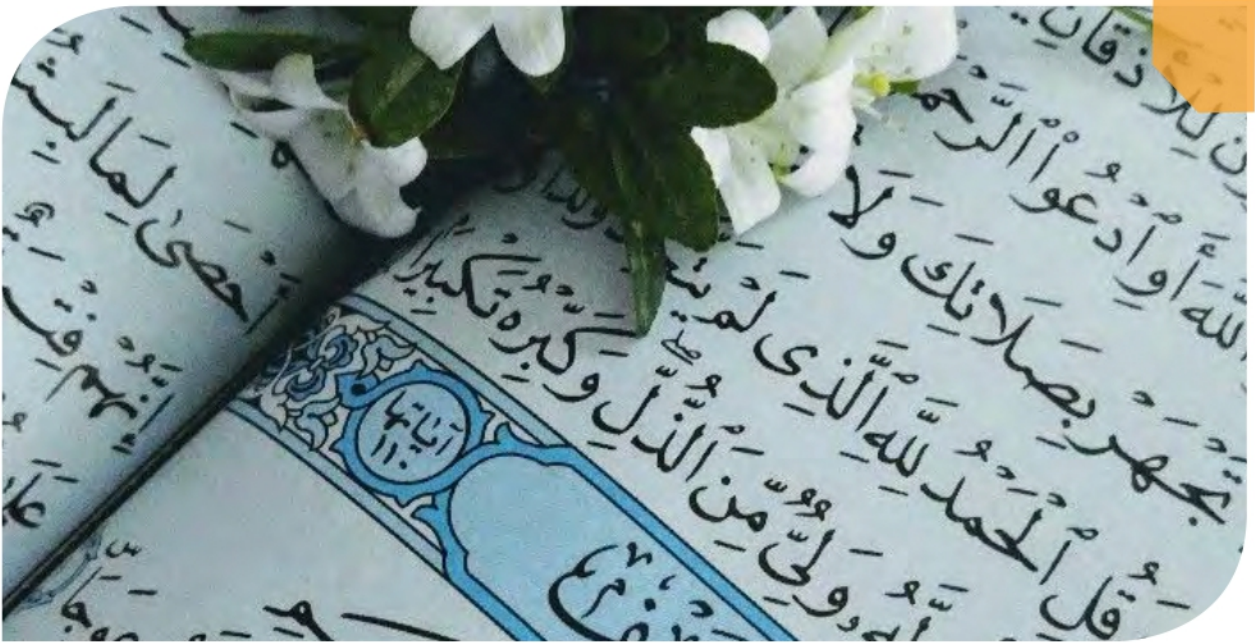 لِلْأَذْقَانِ
ٱللَّهَ أَوِ ٱدْعُوا۟ ٱلرَّحْمَـ
تَجْهَرْ بِصَلَاتِكَ وَلَا
قُلِ ٱلْحَمْدُ لِلَّهِ ٱلَّذِى لَمْ يَتَّـ
وَلِىٌّ مِّنَ ٱلذُّلِّ وَكَبِّرْهُ تَكْبِيرًا
آيَاتُهَا
١١٠
عِوَجَا
أَحْصَىٰ لِمَا لَبِثُـ